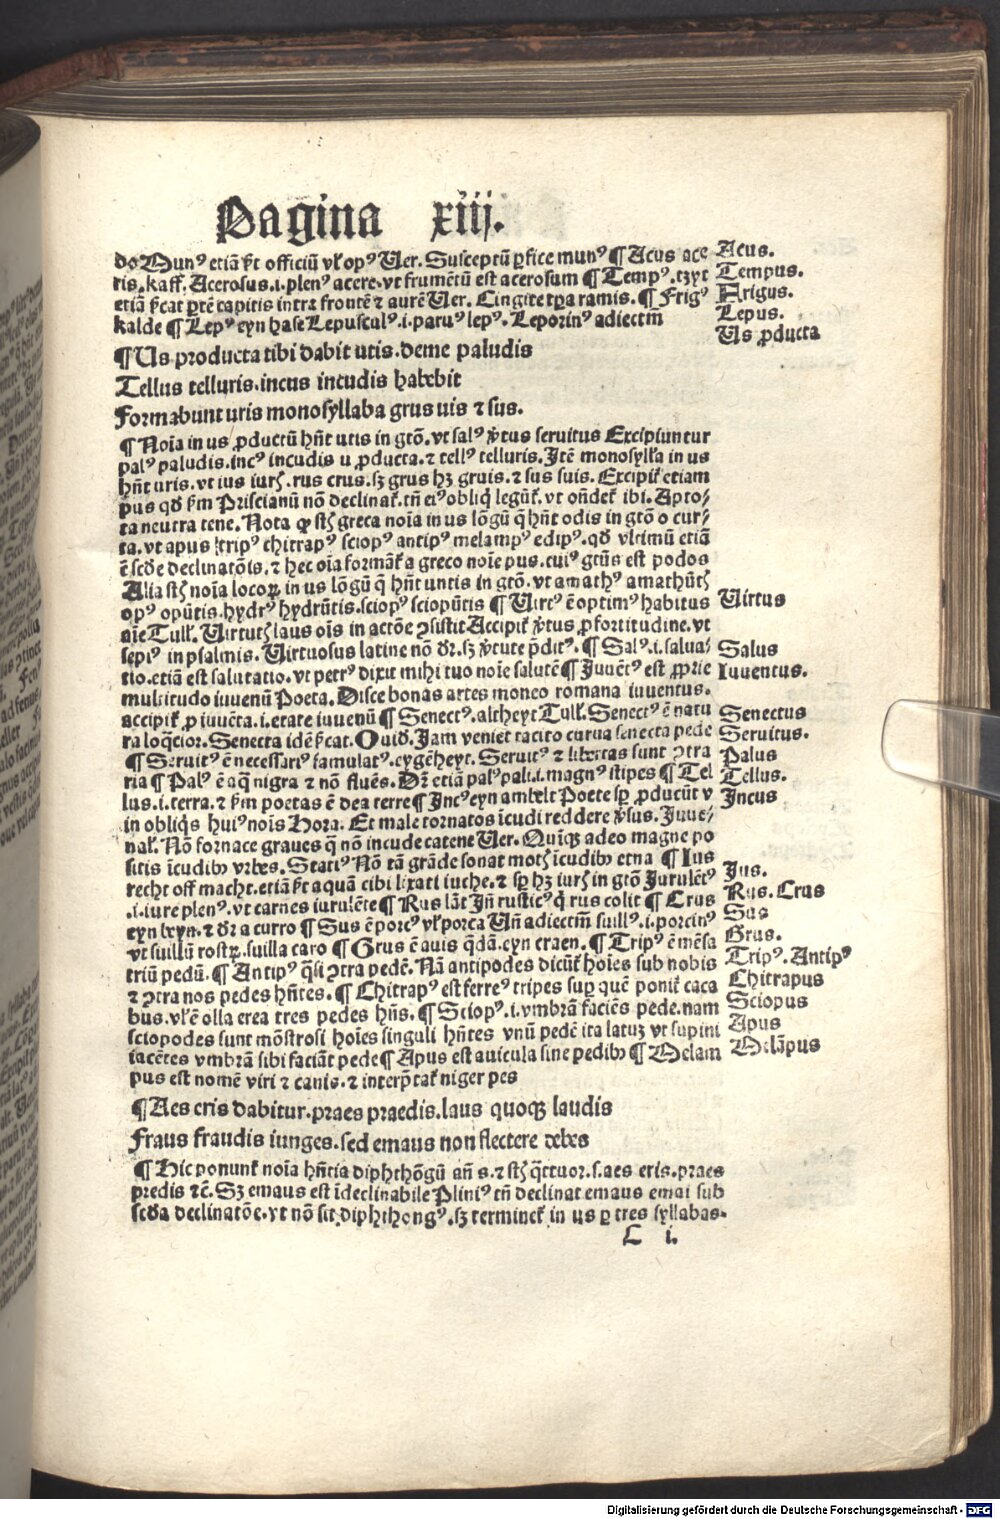 Pagina xiij.
do Munꝰ etiā ſꝫt officiū vl̕ opꝰ Uer. Susceptū ꝑfice munꝰ ¶ Acus ace
Acus.
ris. kaff. Acerosus .i. plenꝰ acere. vt frumētū est acerosum ¶ Tempꝰ. tzyt
Tempus.
etiā ſcat ꝑtē capitis intra frontē ⁊ aurē Uer. Cingite tꝑa ramis. ¶ Frigꝰ
Frigus.
kalde ¶ Lepꝰ eyn hase Lepusculꝰ .i. paruꝰ lepꝰ. Leporinꝰ adiectm̄
Lepus.
Us ꝓducta
¶ Us producta tibi dabit utis. deme paludis
Tellus telluris. incus incudis habebit
Formabunt uris monosyllaba grus uis ⁊ sus.
¶ Noīa in us ꝓductū hn̄t utis in gtō. vt salꝰ v̓tus seruitus Excipiuntur
palꝰ paludis. incꝰ incudis u ꝓducta. ⁊ tellꝰ telluris. Itē monosyll̓a in us
hn̄t uris. vt ius iurꝭ. rus crus. sꝫ grus hꝫ gruis. ⁊ sus suis. Excipit̄ etiam
pus qd̓ ẜm Priscianū nō declinat̄. tn̄ eiꝰ obliq̄ legūt̄. vt on̄det̄ ibi. Apto⸗
ta neutra tene. Nota ꝙ stꝭ greca noīa in us lōgū q̄ hn̄t odis in gtō o cur⸗
ta. vt apus tripꝰ chitrapꝰ sciopꝰ antipꝰ melampꝰ edipꝰ. qd̓ vltimū etiā
ē scd̓e declinatōis. ⁊ hec oīa formāt̄ a greco noīe pus. cuiꝰ gtūs est podos
Alia stꝭ noīa locoꝝ in us lōgū q̄ hn̄t untis in gtō. vt amathꝰ amathūtꝭ
opꝰ opūtis. hydrꝰ hydrūtis. sciopꝰ sciopūtis ¶ Uirtꝰ ē optimꝰ habitus
Uirtus
aīe Tull̓. Uirtutꝭ laus oīs in actōe ꝯsistit Accipit̄ v̓tus ꝓ fortitudine. vt
sepiꝰ in psalmis. Uirtuosus latine nō dr̄. sꝫ v̓tute p̄ditꝰ. ¶ Salꝰ .i. salua⸗
Salus
tio. etiā est salutatio. vt petrꝰ dixit mihi tuo noīe salutē ¶ Juuētꝰ est ꝓprie
Iuuentus.
multitudo iuuenū Poeta. Disce bonas artes moneo romana iuuentus.
accipit̄ ꝓ iuuēta .i. etate iuuenū ¶ Senectꝰ. altheyt Tull̓. Senectꝰ ē natu
Senectus
ra loq̄cior. Senecta idē ſcat. Ouid. Jam veniet tacito curua senecta pede
Seruitus.
¶ Seruitꝰ ē necessariꝰ famulatꝰ. eygēheyt. Seruitꝰ ⁊ libertas sunt ꝯtra
Palus
ria ¶ Palꝰ ē aq̄ nigra ⁊ nō fluēs. Dr̄ etiā palꝰ pali .i. magnꝰ stipes ¶ Tel
Tellus.
lus .i. terra. ⁊ ẜm poetas ē dea terre ¶ Incꝰ eyn ambelt Poete sꝑ ꝓducūt v
Incus
in obliq̄s huiꝰ noīs Hora. Et male tornatos īcudi reddere v̓sus. Juue⸗
nal̓. Nō fornace graues q̄ nō incude catene Uer. Quīqꝫ adeo magne po
sitis īcudibꝫ vrbes. Statiꝰ Nō tā grāde sonat motꝭ īcudibꝫ etna ¶ Ius
Jus.
recht off macht. etiā ſꝫt aquā cibi lixati iuche. ⁊ sꝑ hꝫ iurꝭ in gtō Jurulētꝰ
.i. iure plenꝰ. vt carnes iurulēte ¶ Rus lāt Jn̄ rusticꝰ q̄ rus colit ¶ Crus
Rus. Crus
eyn beyn. ⁊ dr̄ a curro ¶ Sus ē porcꝰ vl̕ porca Un̄ adiectm̄ suillꝰ .i. porcinꝰ
Sus
vt suillū rostꝝ. suilla caro ¶ Grus ē auis q̄dā. eyn craen. ¶ Tripꝰ ē mēsa
Grus.
triū pedū. ¶ Antipꝰ q̄si ꝯtra pedē. Nā antipodes dicūt̄ hoīes sub nobis
Tripꝰ. Antipꝰ
⁊ ꝯtra nos pedes hn̄tes. ¶ Chitrapꝰ est ferreꝰ tripes suꝑ quē ponit̄ caca
Chitrapus
bus. vl̕ ē olla erea tres pedes hn̄s. ¶ Sciopꝰ .i. vmbrā faciēs pede. nam
Sciopus
sciopodes sunt mōstrosi hoīes singuli hn̄tes vnū pedē ita latuꝫ vt supini
Apus
iacētes vmbrā sibi faciāt pede ¶ Apus est auicula sine pedibꝫ ¶ Melam
Melāpus
pus est nomē viri ⁊ canis. ⁊ interp̄tat̄ niger pes
¶ Aes eris dabitur. praes praedis. laus quoqꝫ laudis
Fraus fraudis iunges. sed emaus non flectere debes
¶ Hic ponunt̄ noīa hn̄tia diphthōgū an̄ s. ⁊ stꝭ q̄ttuor. s. aes eris. praes
predis ⁊c̄. Sꝫ emaus est īdeclinabile Pliniꝰ tn̄ declinat emaus emai sub
scd̓a declinatōe. vt nō sit diphthongꝰ. sꝫ terminet̄ in us ꝑ tres syllabas.
C i.
Digitalisierung gefördert durch die Deutsche Forschungsgemeinschaft - DFG